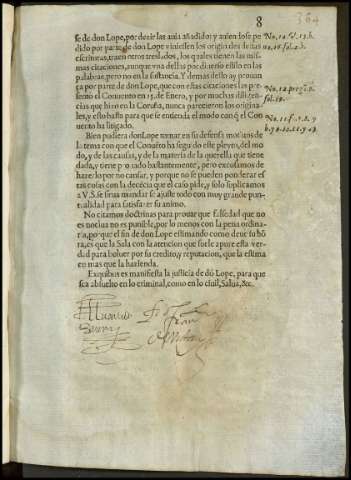 8
364
se de don Lope, por dezir las auia añadido y auiendose pe
dido por parte de don Lope viniessen los originales destas
escrituras, truxeron otros treslados, los quales tienen las mis-
mas citaciones, aunque vna dellas por diuerso estilo en las
palabras, pero no en la sustancia. Y demas desto ay prouan
ça por parte de don Lope, que con estas citaciones las pre-
sentò el Conuento en 15. de Enero, y por muchas diligen-
cias que hizo en la Coruña, nunca parecieron los origina-
les, y esto basta para que se entienda el modo con que el Con
uento ha litigado.
Bien pudiera don Lope tomar en su defensa motiuos de
la tema con que el Conuento ha seguido este pleyto, del mo
do, y de las causas, y de la materia de la querella que tiene
dada, y tiene prouado bastantemente, pero escusamos de
hazerlo por no cansar, y porque no se pueden ponderar es
tas cosas con la decẽcia que el caso pide, y solo suplicamos
a V.S. se sirua mandar se ajuste todo con muy grande pun-
tualidad para satisfazer su animo.
No citamos doctrinas para prouar que falsedad que no
es nociua no es punible, por lo menos con la pena ordina-
ria, porque el fin de don Lope estimando como deue tu hõ
ra, es que la Sala con la atencion que suele apure esta ver-
dad para boluer por su credito, y reputacion, que la estima
en mas que la hazienda.
Ex quibus es manifiesta la justicia de dõ Lope, para que
sea absuelto en lo criminal, como en lo ciuil, Salua, &c.